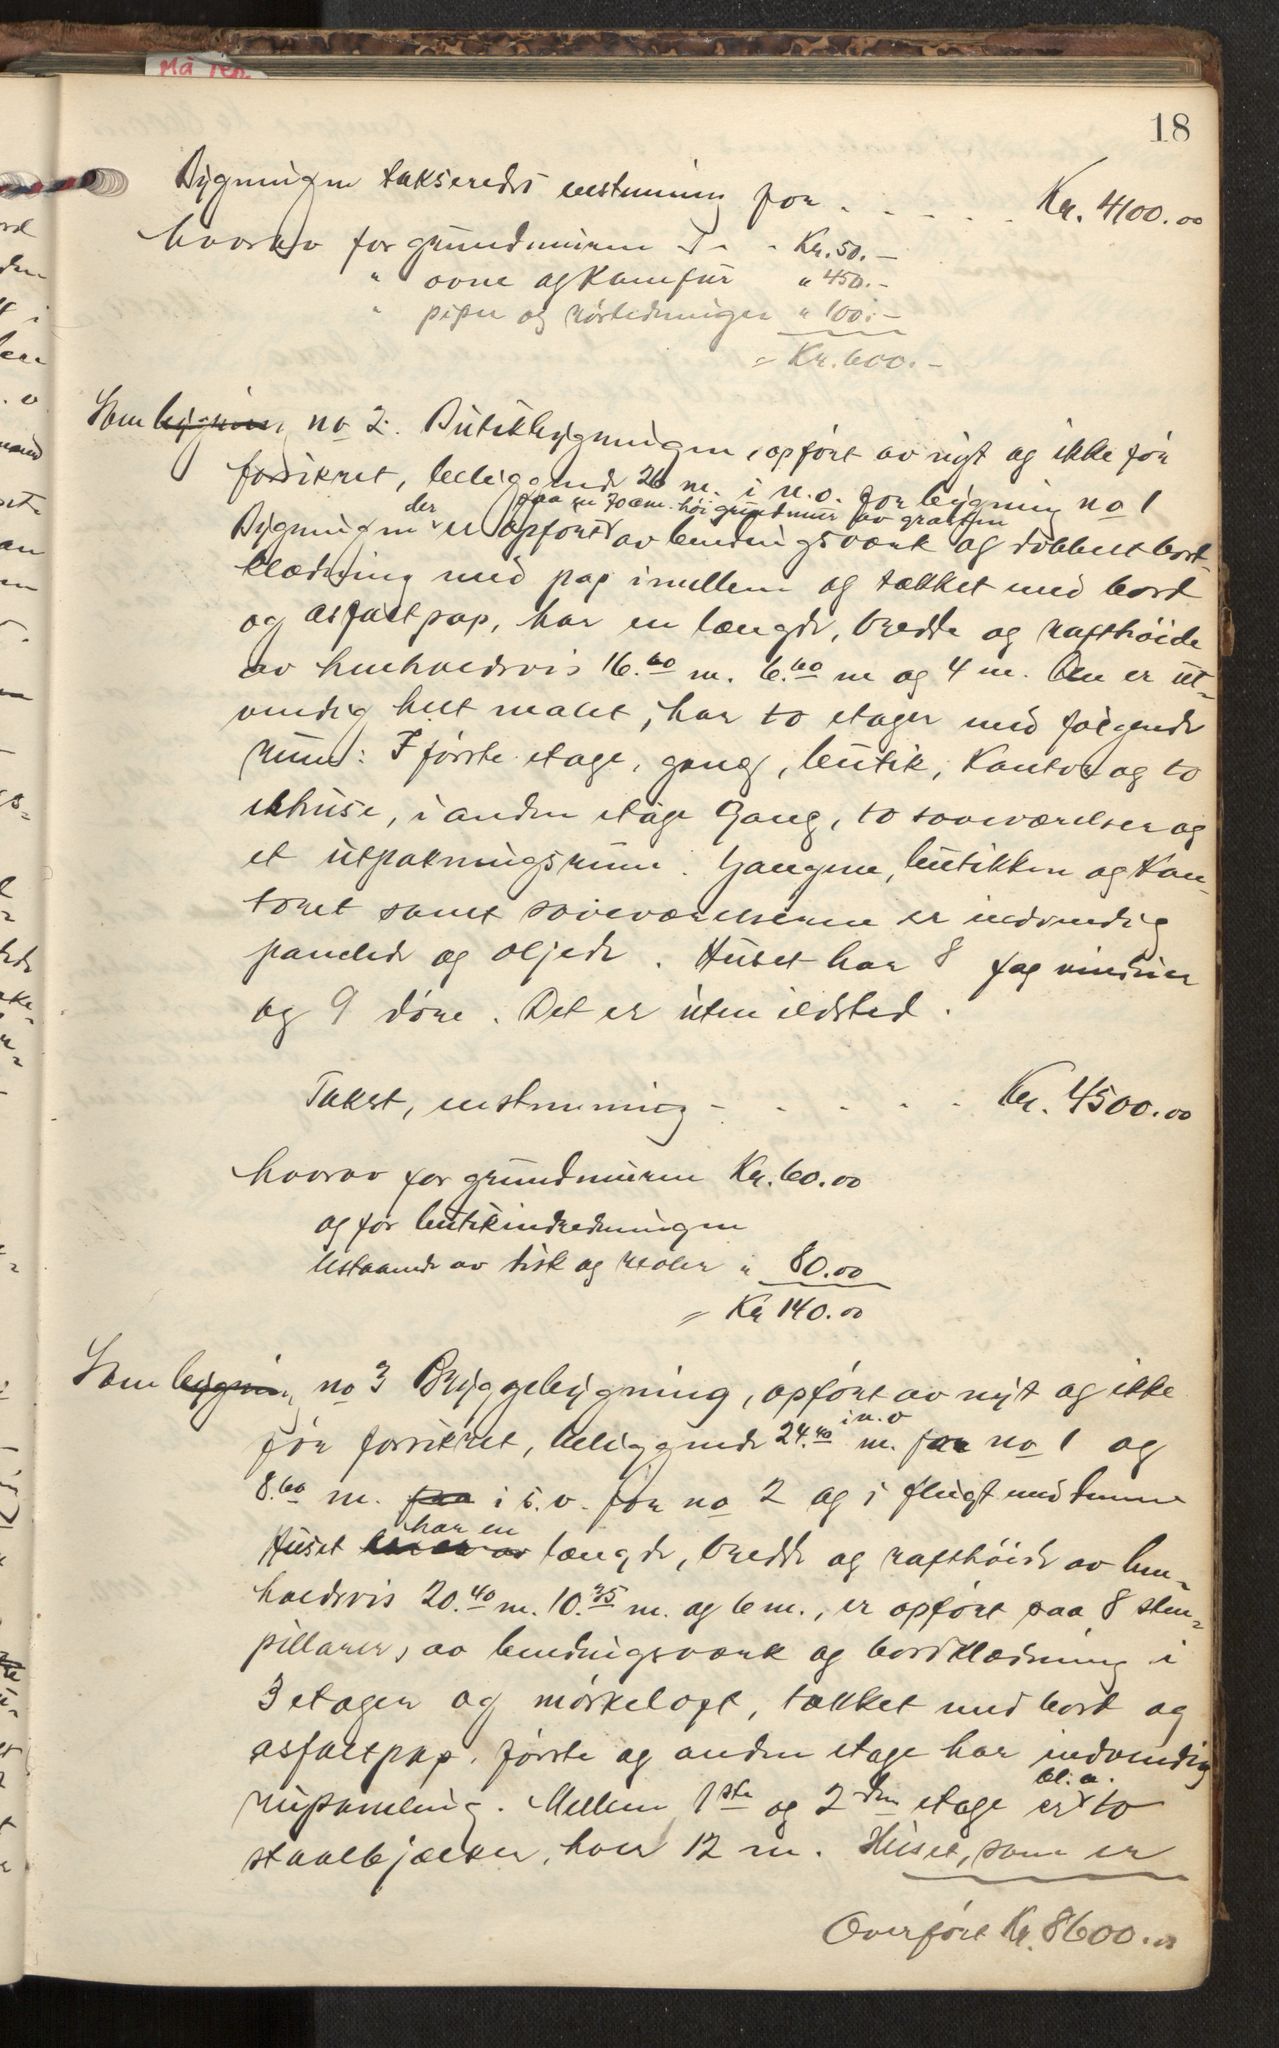 Må rep.
18
Bygningen takseredes enstemmig for . . . . . Kr. 4100.00
hvorav for grundmuren . . Kr. 50.–
" ovne og Komfur " 450.–
" piper og rørledninger " 100.–
= Kr. 600.–
Som bygning no 2. Butikbygningen, opført av nyt og ikke før
forsikret, beliggende 26 m. i n.o. for bygning no 1
der paa en 70 cm. høi grundmur av graasten
Bygningen er opført av bindingsværk og dobbelt bord-
klædning med pap imellem og tækket med bord
og asfaltpap, har en længde, bredde og rafthøide
av henholdsvis 16.60 m. 6.60 m og 4 m. Den er ut-
vendig helt malet, har to etager med følgende
rum: I første etage, gang, butik, Kontor og to
ishuse, i anden etage Gang, to soveværelser og
et utpakningsrum. Gangene, butikken og Kon-
toret samt soveværelserne er indvendig
panelede og oljede. Huset har 8 fag vinduer
og 9 døre. Det er uten ildsted.
Takst, enstemmig . . . . . Kr. 4500.00
hvorav for grundmuren Kr. 60.00
og for butikindredningen
bestaaende av disk og reoler " 80.00
= Kr 140.00
Som bygning no 3 Bryggebygning, opført av nyt og ikke
i n.v
før forsikret, beliggende 24.40 m. for no 1 og
8.60 m. paa i s.v. for no 2 og i flugt med denne
har en
Huset længde, bredde og rafthøide av hen-
holdsvis 20.40 m. 10.35 m. og 6 m., er opført paa 8 sten-
pillarer, av bindingsværk og bordklædning i
3 etager og mørkeloft, tækket med bord og
asfaltpap. første og anden etage har indvendig
bl. a.
rupaneling. Mellem 1ste og 2den etage er to
staalbjælker, hver 12 m. Huset, som er
Overført Kr. 8600.00